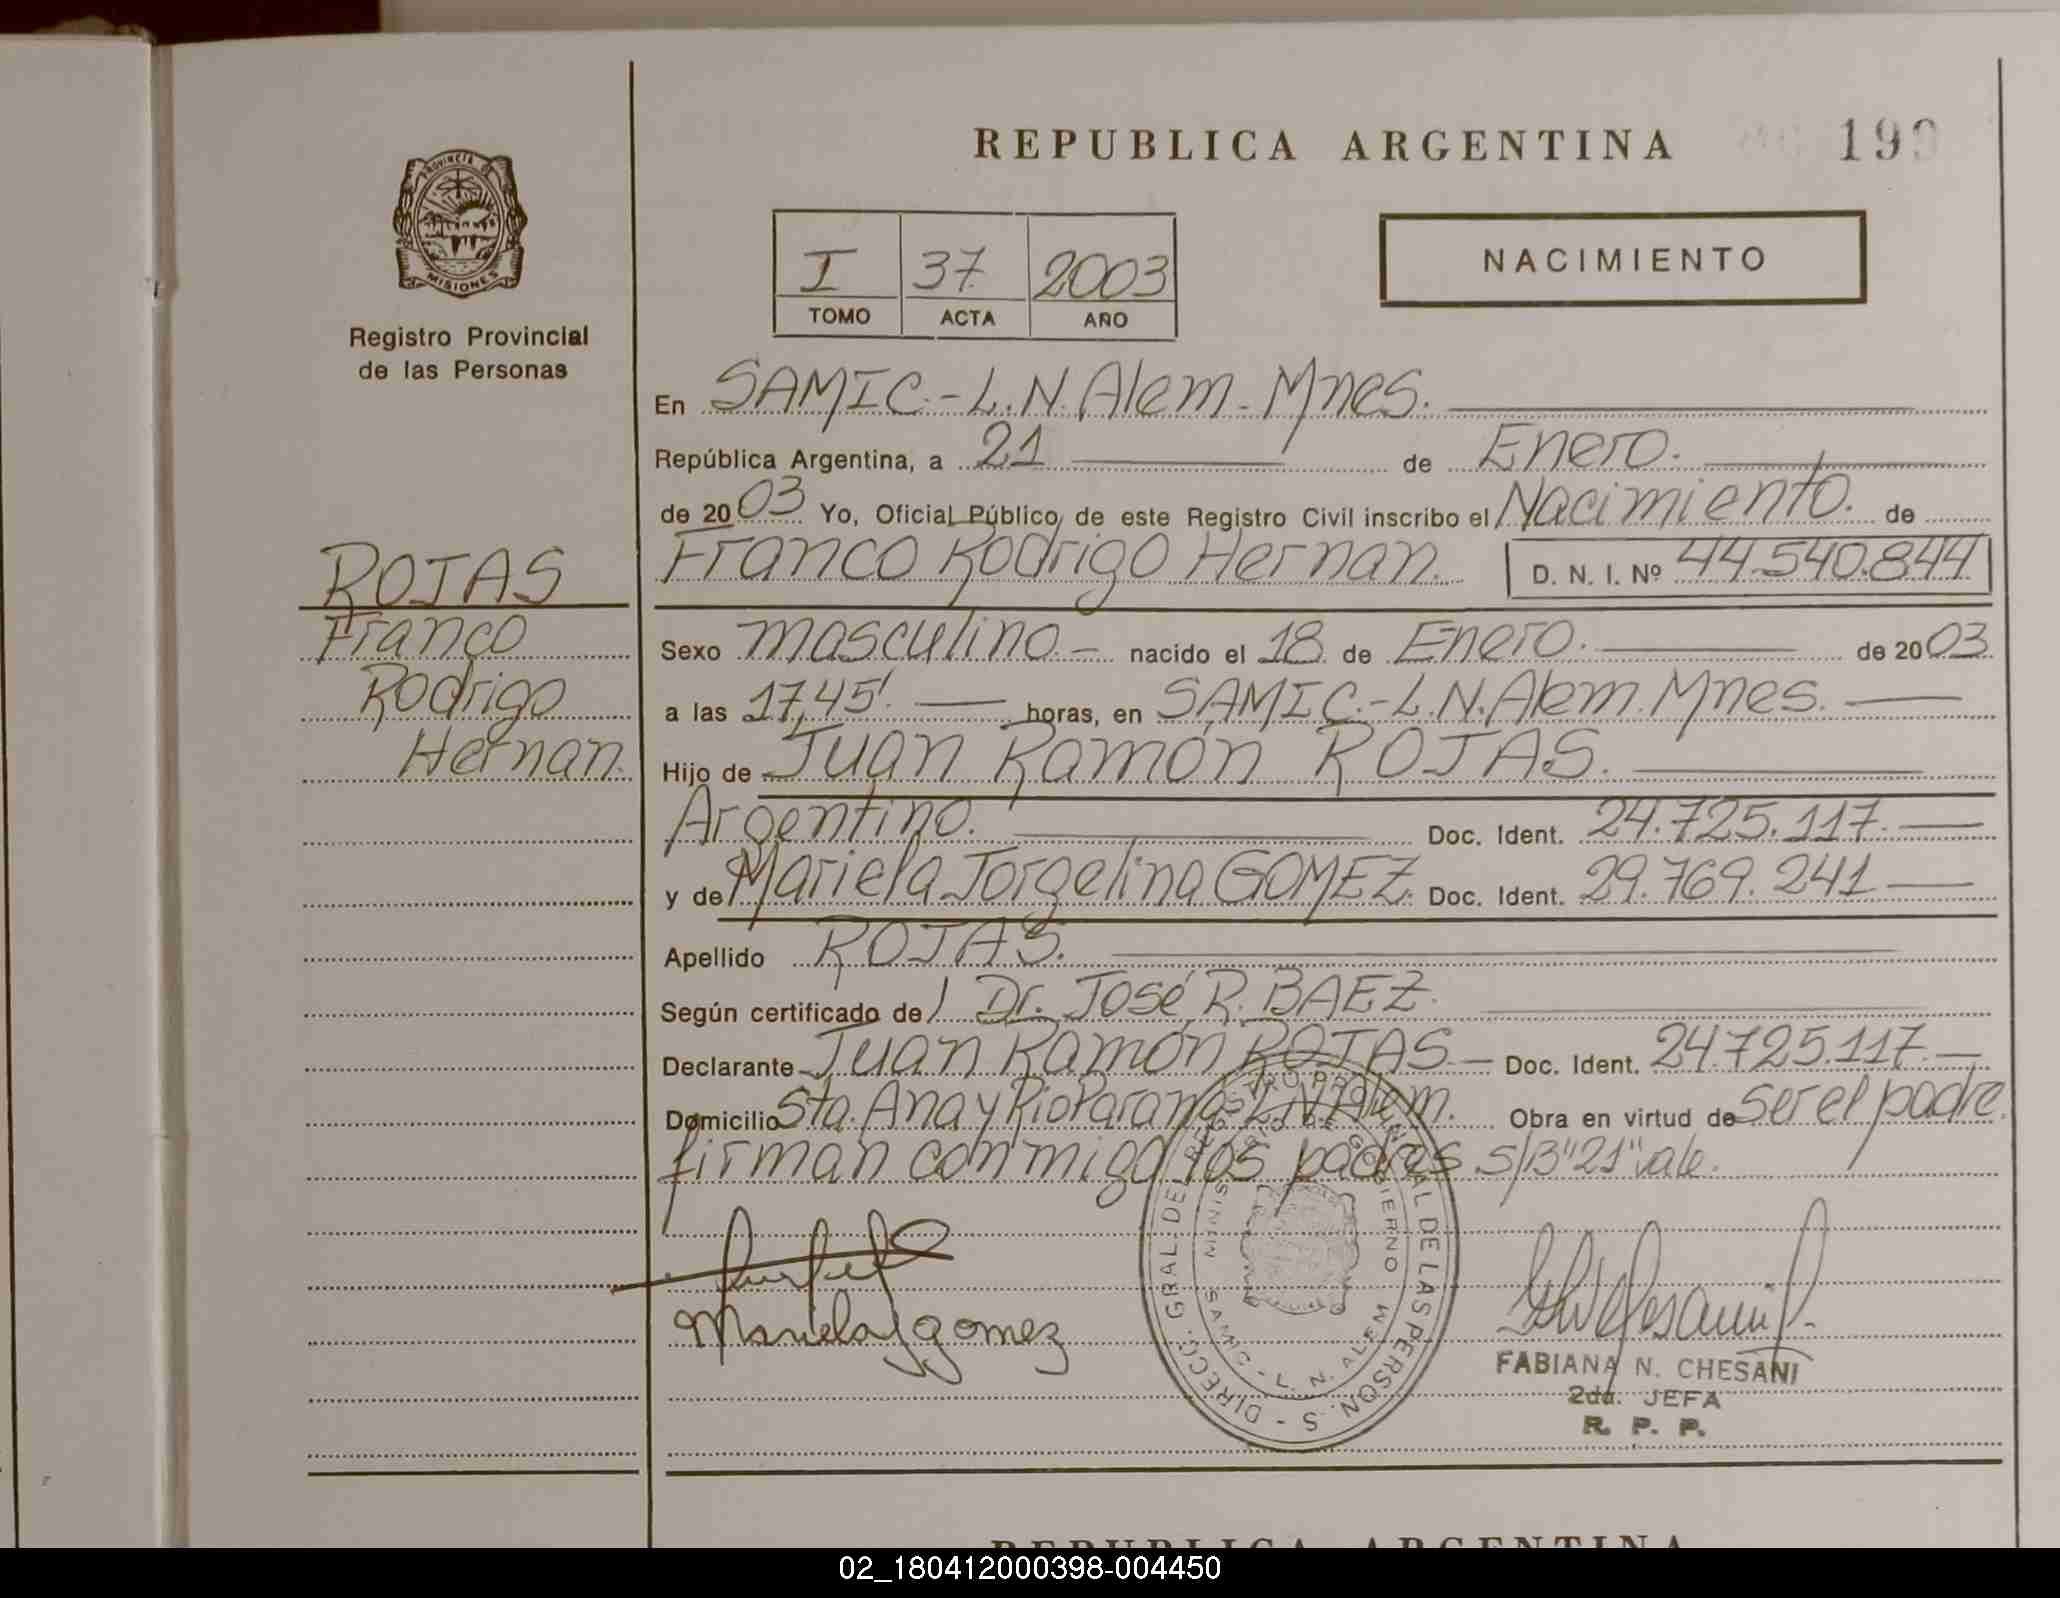 REPUBLICA ARGENTINA 199
PROVINCIA D
MISIONES
Registro Provincial
de las Personas
I 37 2003
TOMO ACTA AÑO
NACIMIENTO
En SAMIC.-L.N.Alem-Mnes.
República Argentina, a 21 de Enero.
de 2003 Yo, Oficial Público, de este Registro Civil inscribo el Nacimiento. de
Franco Rodrigo Hernan. D. N. I. Nº 44.540.844
ROJAS
Franco
Rodrigo
Hernan
Sexo masculino.- nacido el 18 de Enero. de 2003
a las 17,45'. horas, en SAMIC.-L.N.Alem.Mnes.
Hijo de Juan Ramón ROJAS.
Argentino. Doc. Ident. 24.725.117.
y de Mariela Jorgelina GOMEZ. Doc. Ident. 29.769.241
Apellido ROJAS.
Según certificado de Dr. José R. BAEZ.
Declarante Juan Ramón ROJAS Doc. Ident. 24.725.117.
Domicilio Sta. Ana y Rio Parana-L.N.Alem. Obra en virtud de ser el padre.
firman conmigo los padres. s/B"21"vale.
DIRECC. GRAL. DE REGISTRO PROVINCIAL DE LAS PERSON. S
MINISTERIO DE GOBIERNO
SAMIC - L. N. ALEM
Mariela J gomez
FABIANA N. CHESANI
2da. JEFA
R. P. P.
REPUBLICA ARGENTINA
02_180412000398-004450